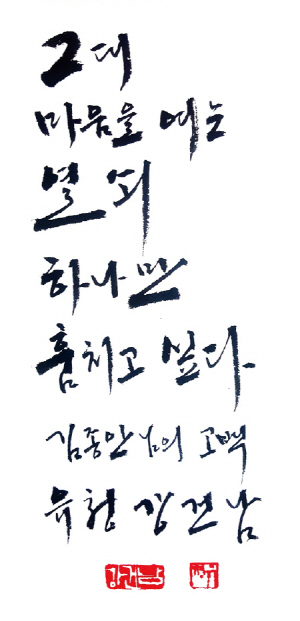 그대
마음을 여는
열쇠
하나만
훔치고 싶다
김종안님의 고백
유천 강건남